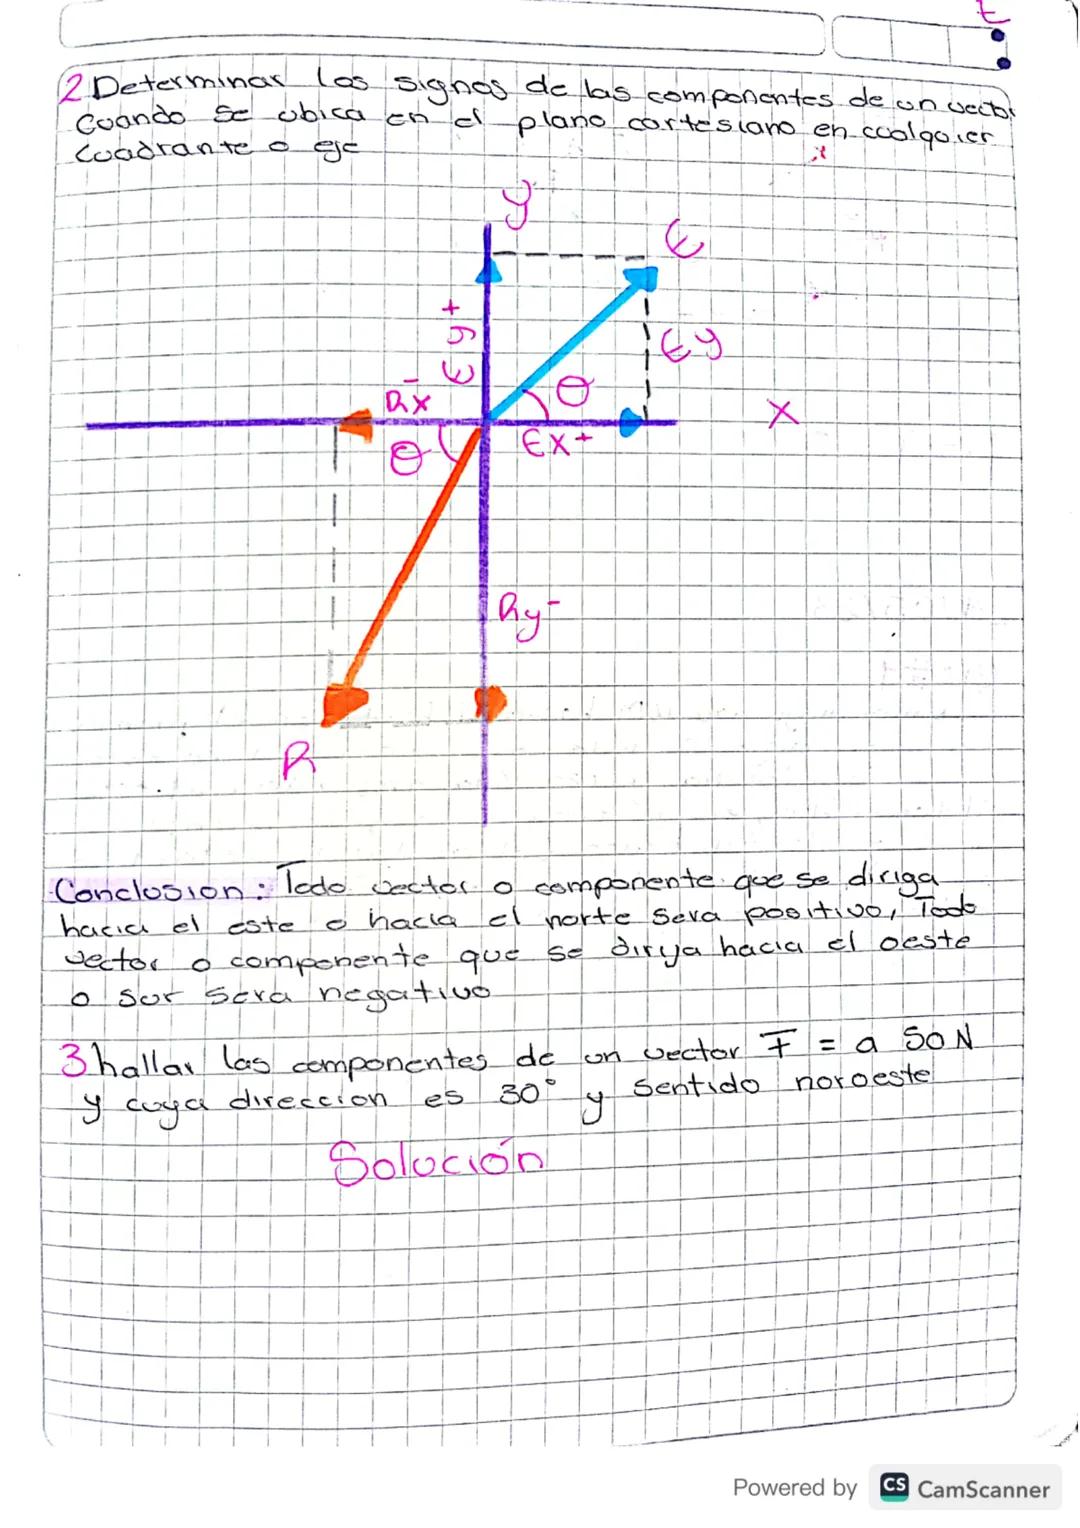 t
2 Determinar los signos de las componentes de un vector
Cuando se ubica en el plano cartesiano en cualquier
Cuadrante o eje
y
E
Ey+
Ey
Rx-
θ
X
θ
Ex+
Ry-
R
Conclusion: Todo vector o componente que se diriga
hacia el este o hacia el norte sera positivo, Todo
vector o componente que se dirija hacia el oeste
o sur sera negativo
3 hallar las componentes de un vector F = a 50 N
y cuya direccion es 30° y sentido noroeste
Solución
Powered by CS CamScanner